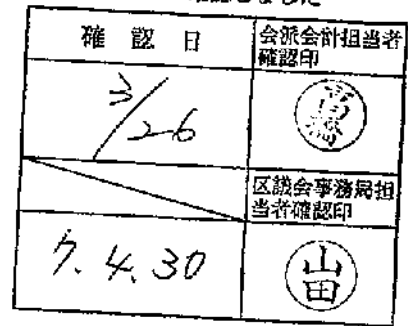 確認しました
確 認 日
会派会計担当者
確認印
3/26
髙橋
区議会事務局担
当者確認印
7.4.30
山田